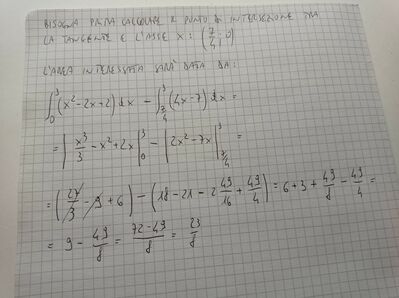 BISOGNA PRIMA CALCOLARE IL PUNTO DI INTERSEZIONE TRA
LA TANGENTE E L'ASSE X : (7/4 ; 0)
L'AREA INTERESSATA SARÀ DATA DA:
∫₀³ (x²-2x+2) dx - ∫_{7/4}³ (4x-7) dx =
= | x³/3 - x² + 2x |₀³ - | 2x² - 7x |_{7/4}³ =
= (27/3 - 9 + 6) - (18 - 21 - 2 49/16 + 49/4) = 6 + 3 + 49/8 - 49/4 =
= 9 - 49/8 = 72-49/8 = 23/8